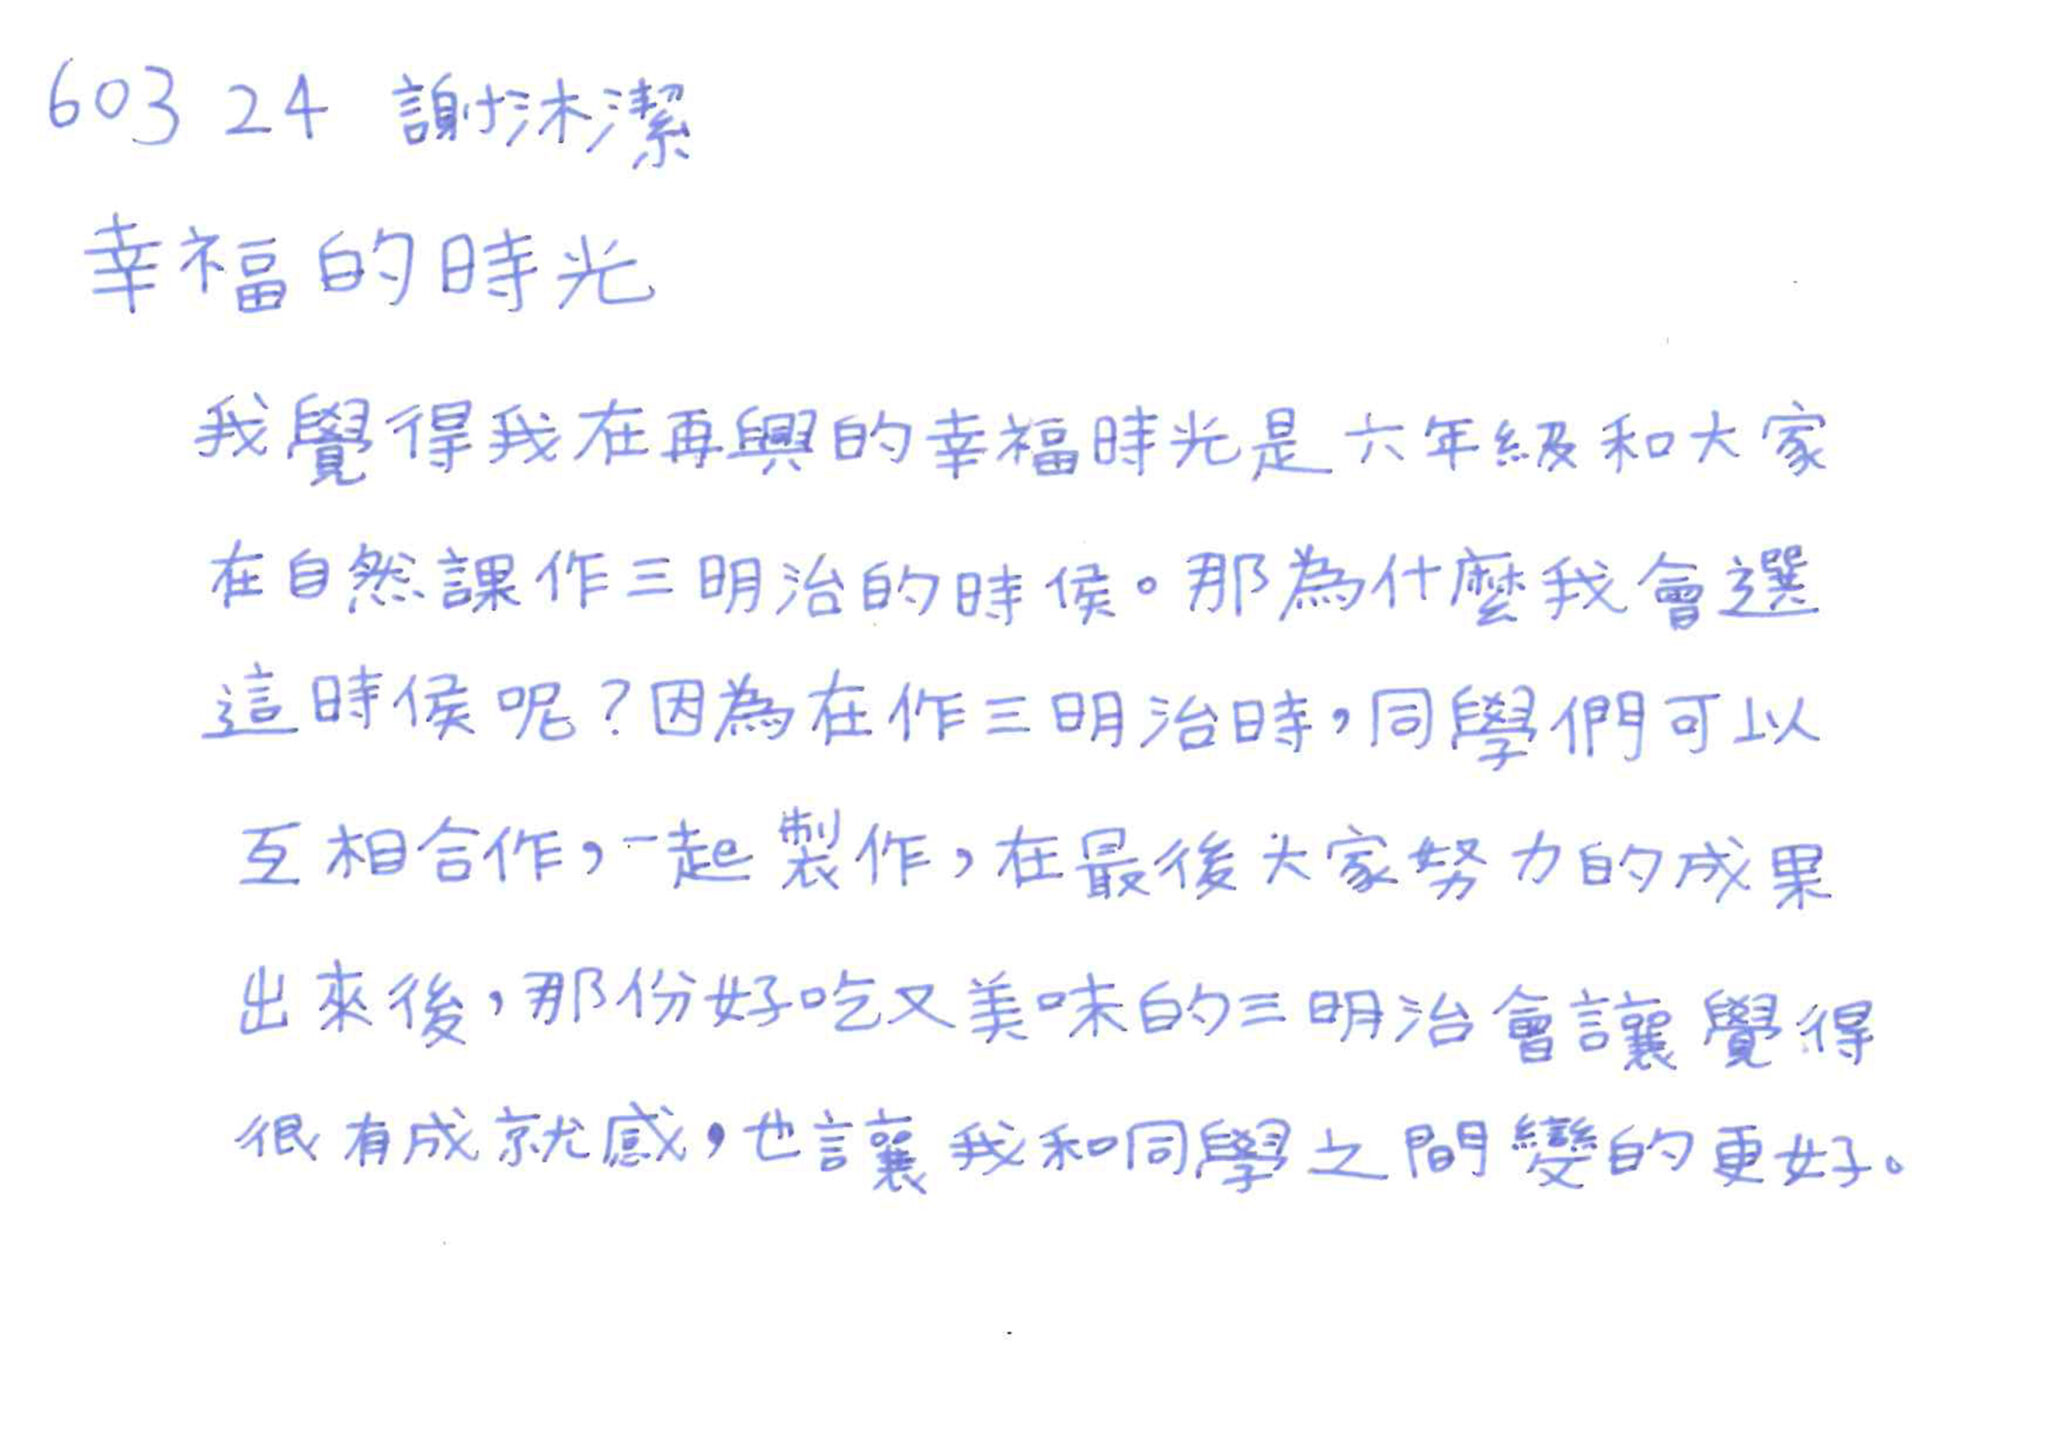 603 24 謝沐潔
幸福的時光
我覺得我在再興的幸福時光是六年級和大家
在自然課作三明治的時侯。那為什麼我會選
這時侯呢？因為在作三明治時，同學們可以
互相合作，一起製作，在最後大家努力的成果
出來後，那份好吃又美味的三明治會讓覺得
很有成就感，也讓我和同學之間變的更好。